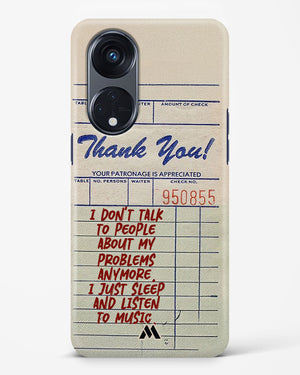 TABLE
WAITER
AMOUNT OF CHECK
Thank You!
YOUR PATRONAGE IS APPRECIATED
TABLE NO. PERSONS WAITER CHECK NO.
950855
I DON'T TALK
TO PEOPLE
ABOUT MY
PROBLEMS
ANYMORE.
I JUST SLEEP
AND LISTEN
TO MUSIC.